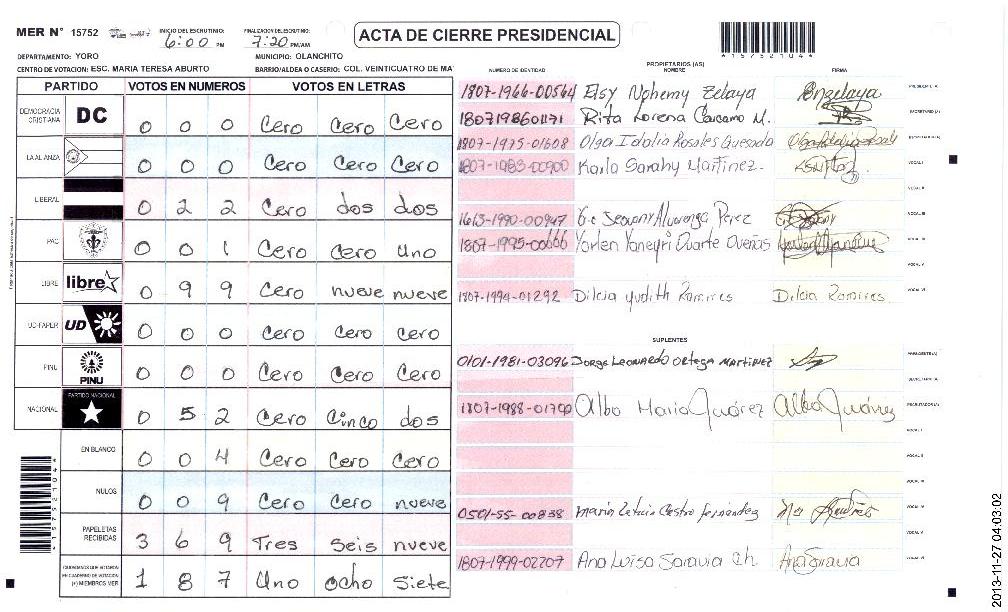 MER N° 15752 INICIO DEL ESCRUTINIO: 6:00 PM FINALIZACION DEL ESCRUTINIO: 7:20 PM/AM
ACTA DE CIERRE PRESIDENCIAL
DEPARTAMENTO: YORO MUNICIPIO: OLANCHITO
CENTRO DE VOTACION: ESC. MARIA TERESA ABURTO BARRIO/ALDEA O CASERIO: COL. VEINTICUATRO DE MA
PARTIDO VOTOS EN NUMEROS VOTOS EN LETRAS
DEMOCRACIA CRISTIANA DC 0 0 0 Cero Cero Cero
LA ALIANZA 0 0 0 Cero Cero Cero
LIBERAL 0 2 2 Cero dos dos
PAC 0 0 1 Cero Cero Uno
LIBRE libre 0 9 9 Cero nueve nueve
UD-FAPER UD 0 0 0 Cero Cero Cero
PINU PINU 0 0 0 Cero Cero Cero
NACIONAL PARTIDO NACIONAL 0 5 2 Cero Cinco dos
EN BLANCO 0 0 4 Cero Cero Cero
NULOS 0 0 9 Cero Cero nueve
PAPELETAS RECIBIDAS 3 6 9 Tres Seis nueve
CIUDADANOS QUE VOTARON EN CUADERNO DE VOTACION (+) MIEMBROS MER 1 8 7 Uno Ocho Siete
PROPIETARIOS (AS)
NUMERO DE IDENTIDAD NOMBRE FIRMA
1807-1966-00564 Elsy Nohemy Zelaya PRESIDENTE (A)
1807198601171 Rita Lorena Carcamo M. SECRETARIO (A)
1807-1975-01608 Olga Idalia Rosales Quesada ESCRUTADOR (A)
1807-1983-00900 Karla Sarahy Martinez. VOCAL I
VOCAL II
1613-1990-00947 Alvarenga Perez VOCAL III
1807-1995-00666 Yorlen Yaneyri Duarte Dueñas VOCAL IV
VOCAL V
1807-1994-01292 Dilcia Yudith Ramires Dilcia Ramires VOCAL VI
SUPLENTES
0101-1981-03096 Jorge Leonardo Ortega Martinez PRESIDENTE (A)
SECRETARIO (A)
1807-1988-01790 Alba Maria Juárez Alba Juárez ESCRUTADOR (A)
VOCAL I
VOCAL II
VOCAL III
0501-55-00838 Maria Leticia Castro Fernandez VOCAL IV
VOCAL V
1807-1999-02207 Ana Luisa Saravia Ch. Ana Saravia VOCAL VI
2013-11-27 04:03:02